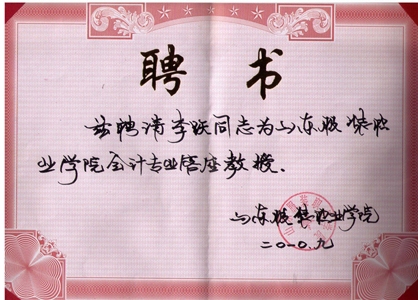 聘书
兹聘请李跃同志为山东服装职
业学院会计专业客座教授.
山东服装职业学院
二〇一〇.九